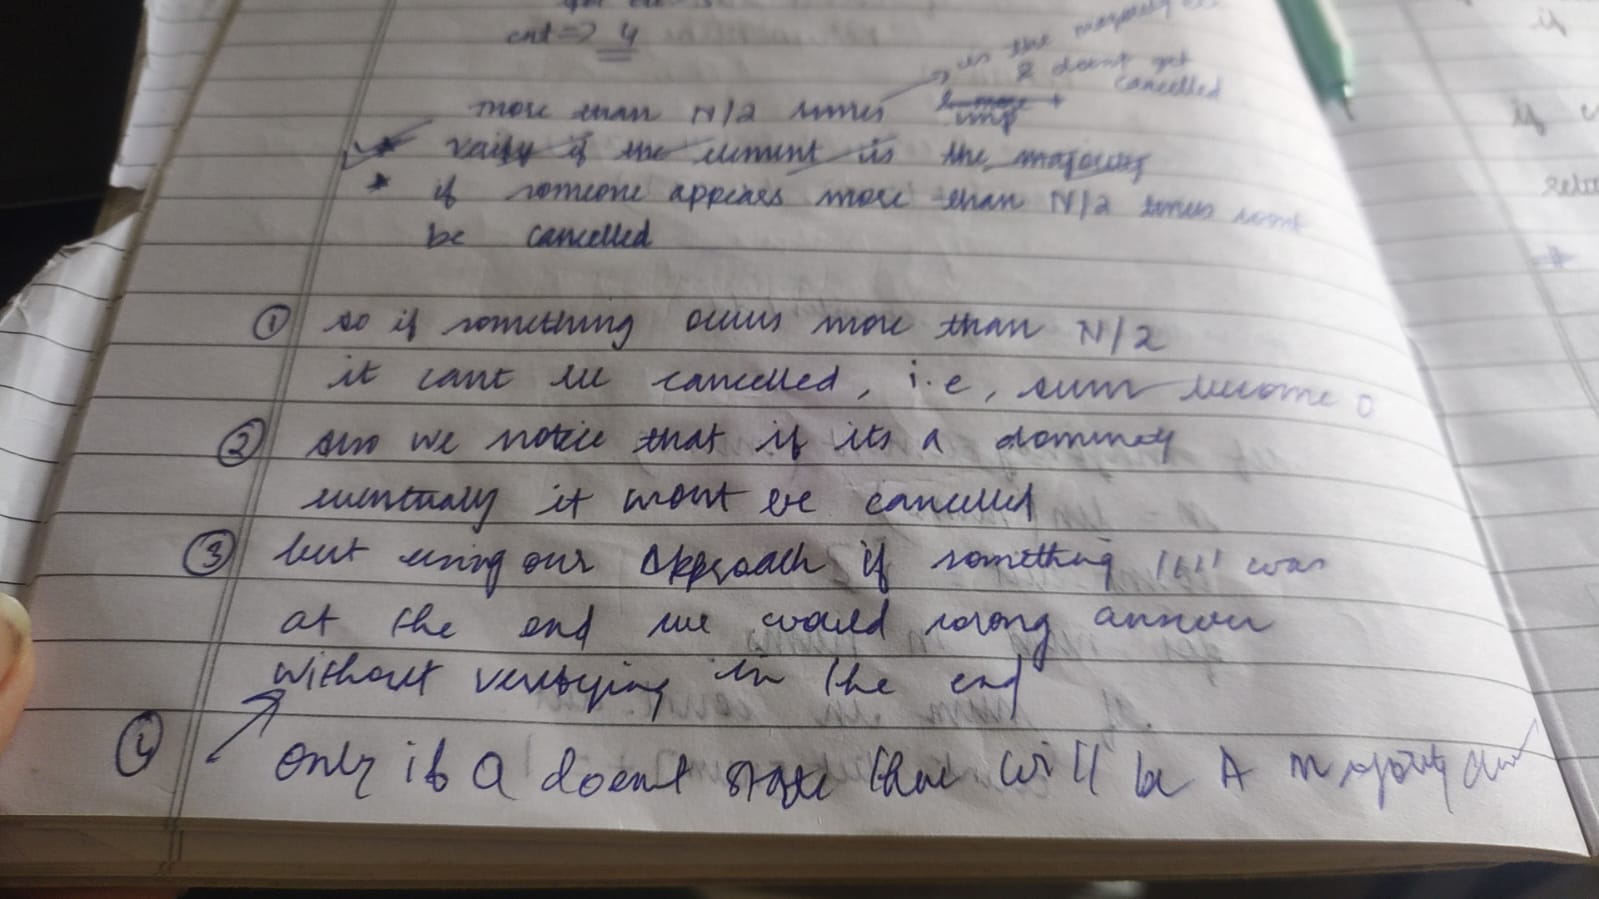 cnt => 4
in the majority
& doesnt get
cancelled
more than N/2 times
imp
verify if the element is the majority
* if someone appears more than N/2 times wont
be cancelled
① so if something occurs more than N/2
it cant be cancelled, i.e, sum become 0
② also we notice that if its a
eventually it wont be cancelled
③ but using our approach if something was
at the end we would wrong answer
without verifying in the end
④ only if Q doesnt state there will be A majority
if
if